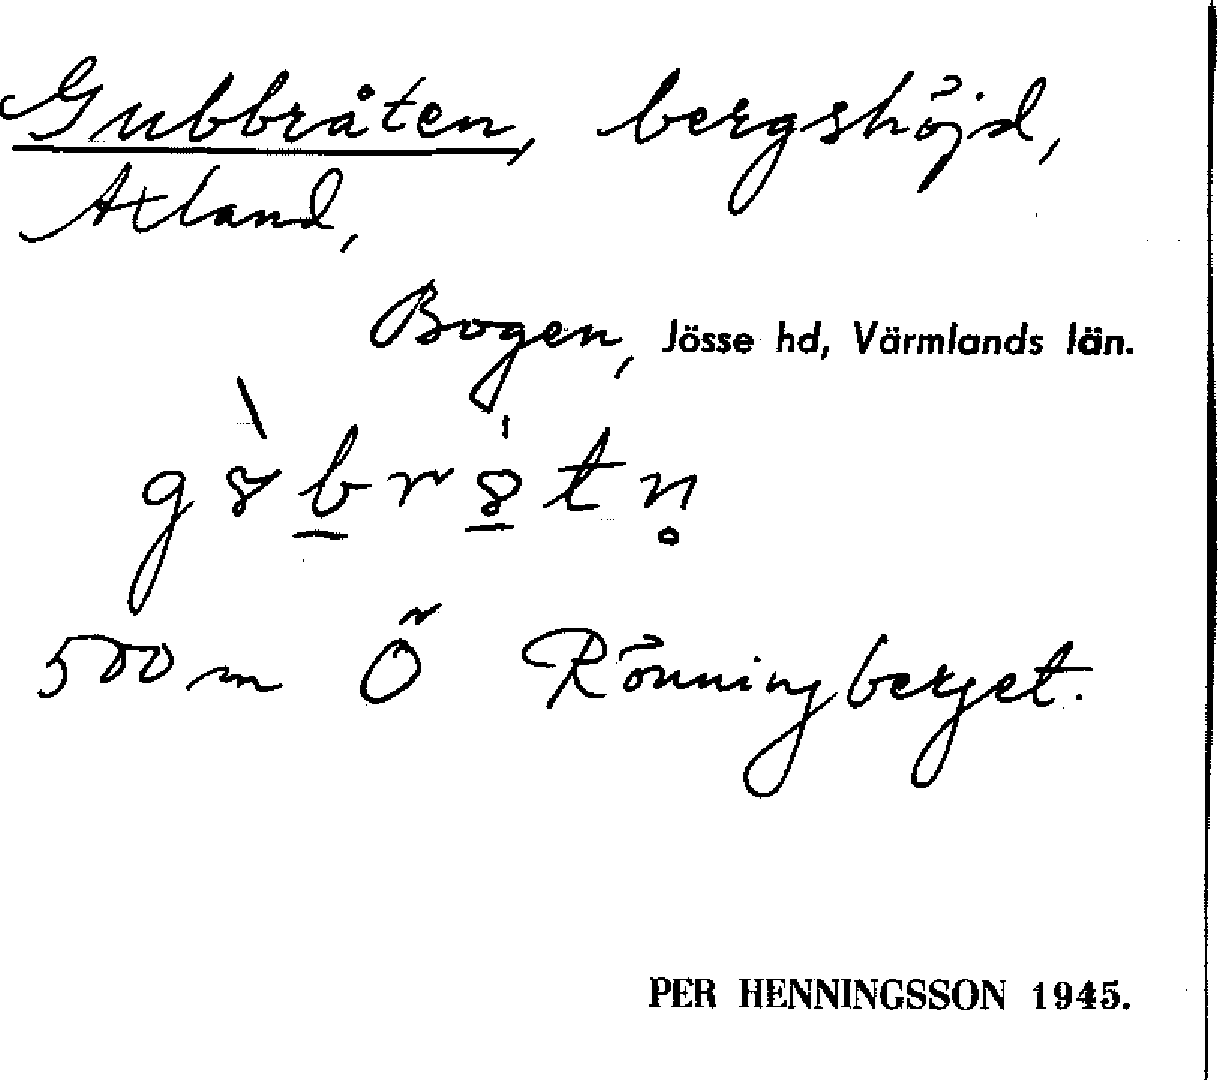 Gubbråten, bergshöjd,
Axland,
Bogen, Jösse hd, Värmlands län.
500 m Ö Rönningberget.
PER HENNINGSSON 1945.